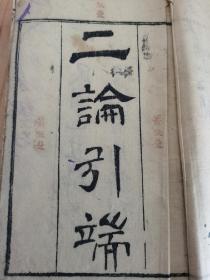 二論引端